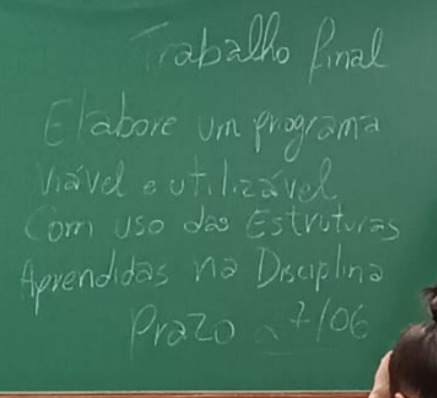 Trabalho final
Elabore um programa
viável e utilizável
Com uso das Estruturas
Aprendidas na Disciplina
Prazo 7/06